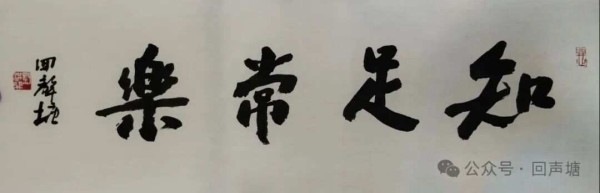 知足常樂
回聲塘
公众号·回声塘